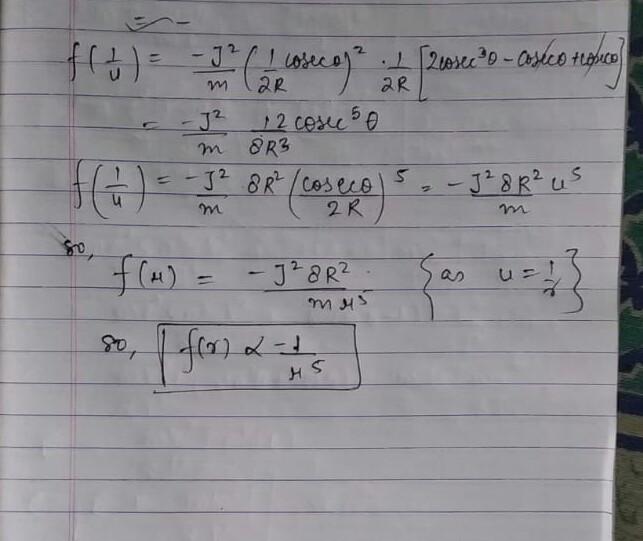 f(1/u) = -J²/m (1/2R cosecθ)² · 1/2R [2cosec³θ - cosecθ + cosecθ]
= -J²/m 12cosec⁵θ/8R3
f(1/u) = -J²/m 8R² (cosecθ/2R)⁵ = -J²8R²u⁵/m
so,
f(r) = -J²8R²/mr⁵ {as u = 1/r}
so, f(r) ∝ -1/r⁵